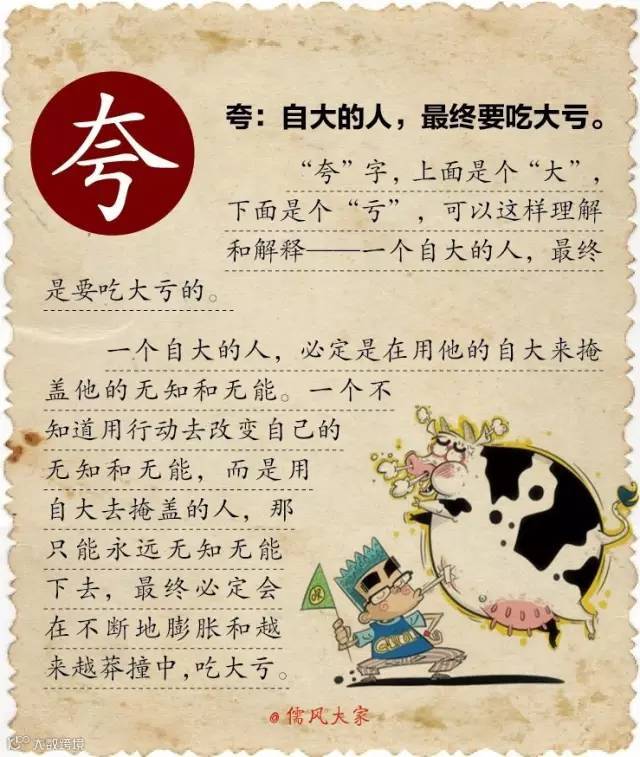 夸
夸：自大的人，最终要吃大亏。
“夸”字，上面是个“大”，
下面是个“亏”，可以这样理解
和解释——一个自大的人，最终
是要吃大亏的。
一个自大的人，必定是在用他的自大来掩
盖他的无知和无能。一个不
知道用行动去改变自己的
无知和无能，而是用
自大去掩盖的人，那
只能永远无知无能
下去，最终必定会
在不断地膨胀和越
来越莽撞中，吃大亏。
@儒风大家
大数跨境